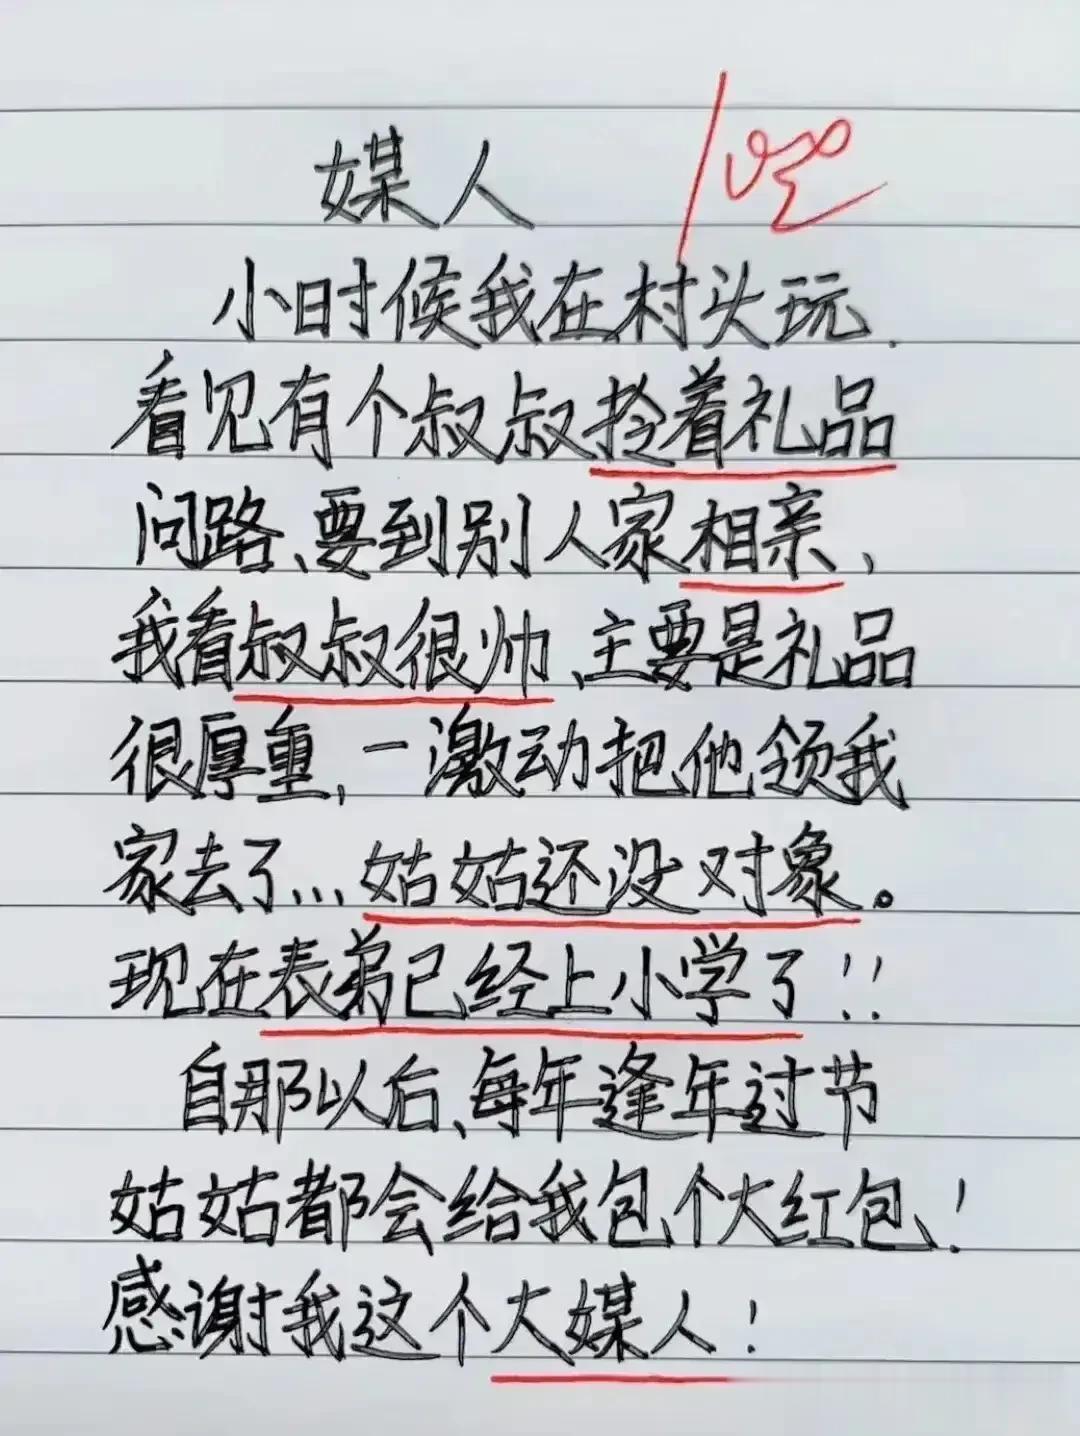 媒人 100
小时候我在村头玩.
看见有个叔叔拎着礼品
问路、要到别人家相亲、
我看叔叔很帅、主要是礼品
很厚重,一激动把他领我
家去了...姑姑还没对象。
现在表弟已经上小学了!!
自那以后、每年逢年过节
姑姑都会给我包个大红包!
感谢我这个大媒人!